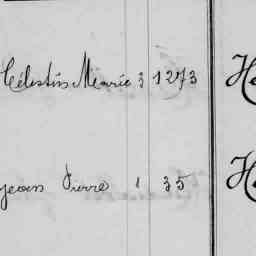 Célestin Marie 3 1273 H
Jean Pierre 1 35 H